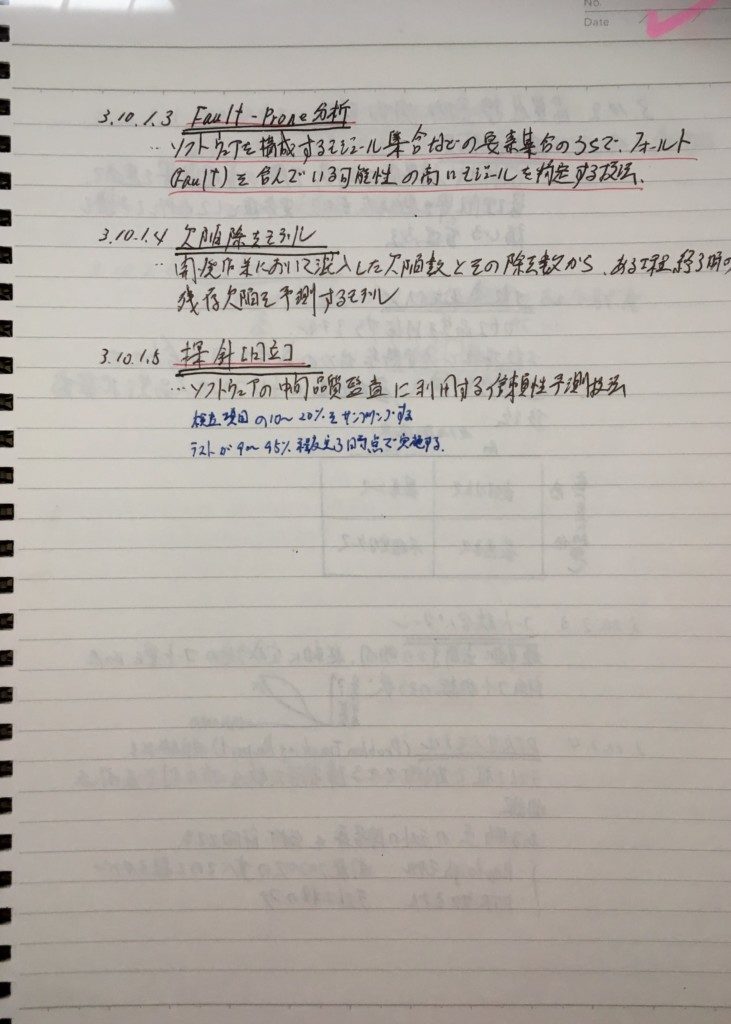 No.
Date
3.10.1.3 Fault-Prone分析
… ソフトウェアを構成するモジュール集合などの要素集合のうちで、フォールト
(Fault)を含んでいる可能性の高いモジュールを特定する技法.
3.10.1.4 欠陥除去モデル
… 開発作業において混入した欠陥数とその除去数から、ある工程終了時の
残存欠陥を予測するモデル
3.10.1.5 探針[日立]
… ソフトウェアの中間品質監査に利用する信頼性予測技法
検査項目の10〜20%をサンプリングする
テストが40〜45%程度完了時点で実施する.